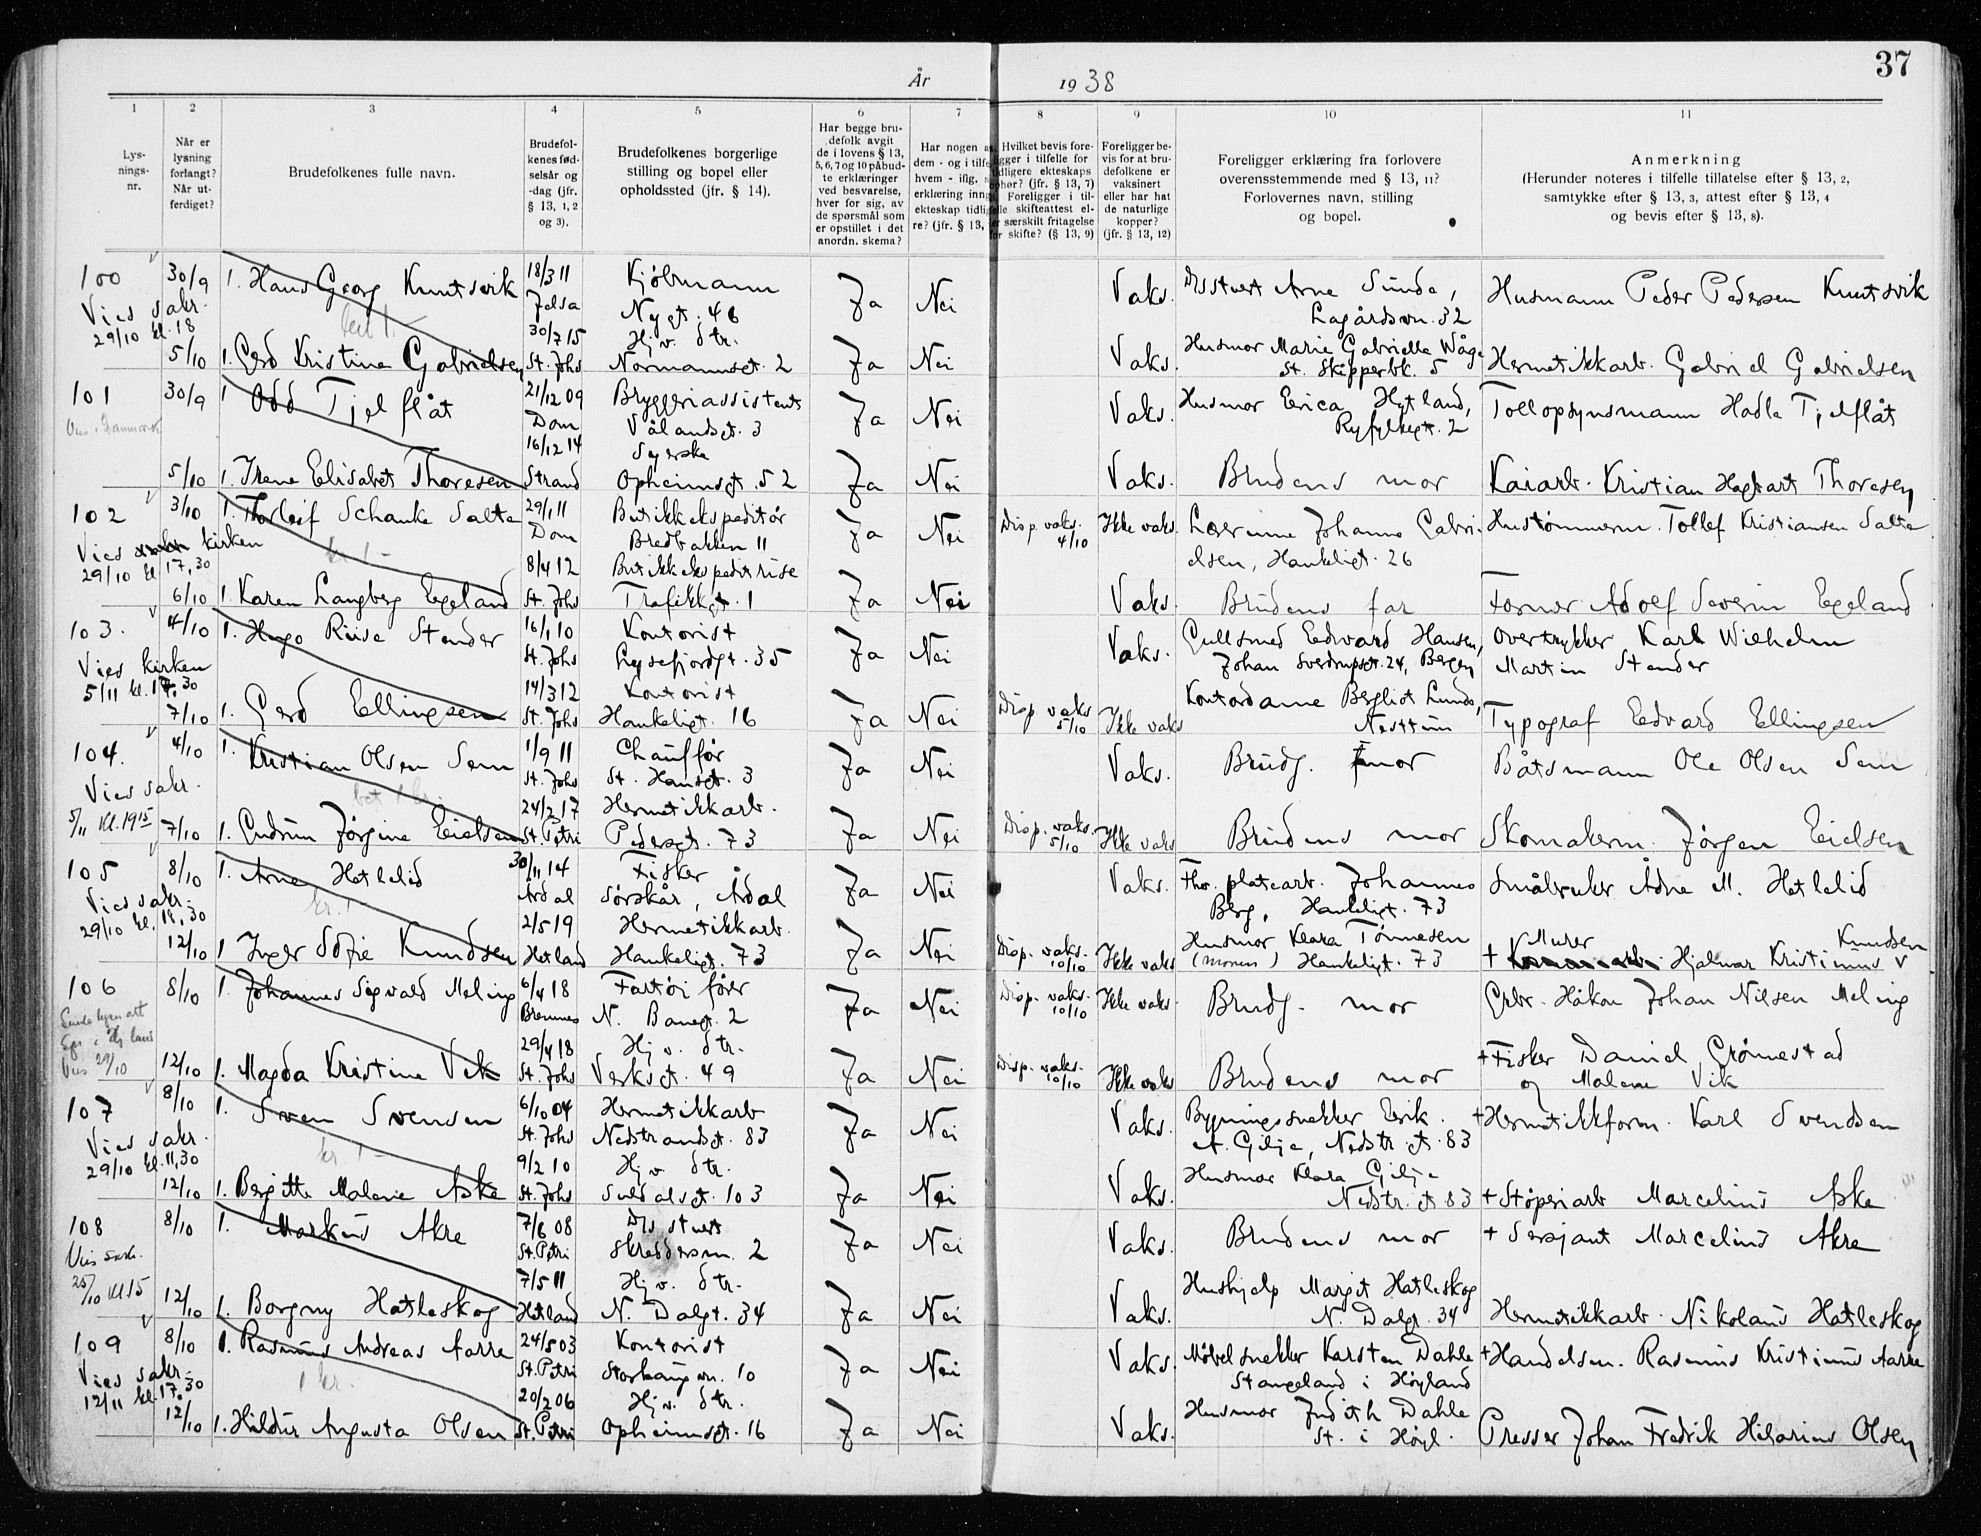 37
År 1938
1 2 3 4 5 6 7 8 9 10 11
Lys-
nings-
nr.
Når er
lysning
forlangt?
Når ut-
ferdiget?
Brudefolkenes fulle navn.
Brudefol-
kenes fød-
selsår og
-dag (jfr.
§ 13, 1, 2
og 3).
Brudefolkenes borgerlige
stilling og bopel eller
opholdssted (jfr. § 14).
Har begge bru-
defolk avgit
de i lovens § 13,
5, 6, 7 og 10 påbud-
te erklæringer
ved besvarelse,
hver for sig, av
de spørsmål som
er opstillet i det
anordn. skema?
Har nogen a
dem - og i tilfe
hvem - iflg. s
erklæring inng
ekteskap tidlig
re? (jfr. § 13,
Hvilket bevis fore-
ligger i tilfelle for
tidligere ekteskaps
ophør? (jfr. § 13, 7)
Foreligger i til-
felle skifteattest el-
er særskilt fritagelse
for skifte? (§ 13, 9)
Foreligger be-
vis for at bru-
defolkene er
vaksinert
eller har hat
de naturlige
kopper?
(jfr. § 13, 12)
Foreligger erklæring fra forlovere
overensstemmende med § 13, 11?
Forlovernes navn, stilling
og bopel.
Anmerkning
(Herunder noteres i tilfelle tillatelse efter § 13, 2,
samtykke efter § 13, 3, attest efter § 13, 4
og bevis efter § 13, 8).
100 30/9 1. Hans Georg Knutsvik 18/3 11 Kjøbmann Ja Nei Vaks. Arne Sunde, Husmann Peder Pedersen Knutsvik
Vies sakr. Jelsa Nygt. 46 Lagårdsvn. 32
29/10 kl. 18 30/7 15 Hj v. dtr. Husmor Marie Gabrielle Våge
5/10 1. Gerd Kristine Gabrielsen St. Johs Normannsgt. 2 Ja Nei Vaks. St. Skipperbk. 5 Hermetikkarb. Gabriel Gabrielsen
101 30/9 1 Odd Tjelflåt 21/12 09 Bryggeriassistent Ja Nei Vaks. Husmor Erica Hytland, Tollopsynsmann Hadle Tjelflåt
Vies i Danmark Dom Vålandsgt. 3 Ryfylkegt. 2
16/12 14 Syerske
5/10 1. Irene Elisabet Thoresen Strand Opheimsgt. 52 Ja Nei Vaks. Brudens mor Kaiarb. Kristian Hagbart Thoresen
102 3/10 1. Thorleif Schanke Salte 29/1 11 Butikkekspeditør Ja Nei Disp. vaks. 4/10 Ikke vaks. Lærerinne Johanne Gabri- Hustømmerm. Tollef Kristiansen Salte
Vies kirken Dom Bredbakken 11 elsen, Hankeligt. 26
29/10 kl 17,30 8/4 12 Butikkekspeditrise
6/10 1. Karen Langberg Egeland St. Johs Trafikkgt. 1 Ja Nei Vaks. Brudens far Former Adolf Severin Egeland
103. 4/10 1. Hugo Riise Stender 16/1 10 Kontorist Ja Nei Vaks. Gullsmed Edvard Hansen, Overtrykker Karl Wilhelm
Vies kirken St. Johs Lysefjordgt. 35 Johan Sverdrupsgt. 24, Bergen Martin Stender
5/11 kl. 17.30 14/3 12 Kontorist Kontordame Bergliot Lunds,
7/10 1. Gerd Ellingsen St. Johs Hankeligt. 16 Ja Nei Disp vaks 5/10 Ikke vaks Nesttun Typograf Edvard Ellingsen
104. 4/10 1. Kristian Olsen Sem 1/9 11 Chauffør Ja Nei Vaks. Brudg. mor Båtsmann Ole Olsen Sem
Vies sakr. St. Johs St. Hansgt. 3
bet 1 kr.
24/2 17 Hermetikkarb.
5/11 Kl. 19 15 7/10 1. Gudrun Jørgine Eielsen St. Petri Pedersgt. 73 Ja Nei Disp. vaks. 5/10 Ikke vaks Brudens mor Skomakerm. Jørgen Eielsen
105 8/10 1. Arne Hetlelid 30/11 14 Fisker Ja Nei Vaks. Fhv. platearb. Johannes Småbruker Ådne M. Hetlelid
Vies sakr. Årdal Sørskår, Årdal Berg, Hankeligt. 73
29/10 kl. 18,30 kr. 1 2/5 19 Hermetikkarb. Husmor Klara Tønnesen Murer Knudsen
12/10 1 Inger Sofie Knudsen Hetland Hankeligt. 73 Ja Nei Disp. vaks. 10/10 Ikke vaks (moren) Hankeligt. 73 + Hjalmar Kristinus v
106 8/10 1. Johannes Sigvald Meling 6/4 18 Fartøifører Ja Nei Disp. vaks. 10/10 Ikke vaks. Brudg. mor Grbr. Håkon Johan Nilsen Meling
Bremnes N. Banegt. 2
Vies 29/10 29/4 18 Hj v. dtr. + Fisker Daniel Grønnestad
12/10 1. Magda Kristine Vik St. Johs Verksgt. 49 Ja Nei Disp. vaks. 10/10 Ikke vaks Brudens mor og Malene Vik
107 8/10 1. Sven Svensen 6/10 04 Hermetikkarb Ja Nei Vaks. Bygningssnekker Erik + Hermetikkform. Karl Svendsen
Vies sakr. St. Johs Nedstrandsgt. 83 A. Gilje, Nedstr. gt. 83
29/10 kl. 11,30 kr 1 - 9/2 10 Hj v. dtr. Husmor Klara Gilje
12/10 1. Bergitte Malene Aske St. Johs Suldalsgt. 103 Ja Nei Vaks. Nedstr. gt 83 + Støperiarb Marcelius Aske
108 8/10 1. Markus Akre 7/6 08 Ja Nei Vaks. Brudens mor + Sersjant Marcelius Akre
Vies sakr. St. Petri Skreddersm. 2
25/10 kl 15 7/5 11 Hj v. dtr. Hushjelp Margit Hatleskog
12/10 1. Borgny Hatleskog Hetland N. Dalgt. 34 Ja Nei Vaks. N. Dalgt. 34 Hermetikkarb. Nikolaus Hatleskog
109 8/10 1. Rasmus Andreas Aarre 24/5 03 Kontorist Ja Nei Vaks. Møbelsnekker Karsten Dahle + Handelsm. Rasmus Kristinus Aarre
Vies sakr. St. Petri Storhaugvn. 10 Stangeland i Høyland
12/11 kl. 17.30 1 kr. 20/2 06 Hj v. dtr. Husmor Judith Dahle
12/10 1. Hildur Augusta Olsen St. Petri Opheimsgt. 16 Ja Nei Vaks. St. i Høyl. Presser Johan Fredrik Hilarius Olsen